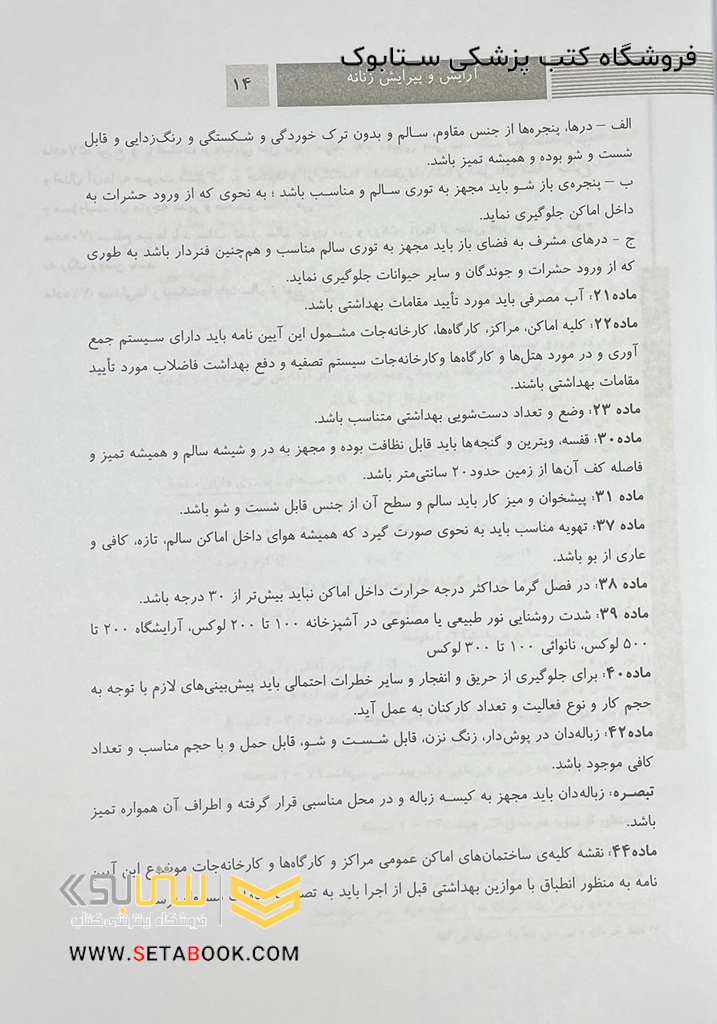 فروشگاه کتب پزشکی ستابوک
آرایش و پیرایش زنانه
۱۴
الف – درها، پنجره‌ها از جنس مقاوم، سالم و بدون ترک خوردگی و شکستگی و رنگ‌زدایی و قابل
شست و شو بوده و همیشه تمیز باشد.
ب – پنجره‌ی باز شو باید مجهز به توری سالم و مناسب باشد ؛ به نحوی که از ورود حشرات به
داخل اماکن جلوگیری نماید.
ج – درهای مشرف به فضای باز باید مجهز به توری سالم مناسب و هم‌چنین فنردار باشد به طوری
که از ورود حشرات و جوندگان و سایر حیوانات جلوگیری نماید.
ماده۲۱: آب مصرفی باید مورد تأیید مقامات بهداشتی باشد.
ماده۲۲: کلیه اماکن، مراکز، کارگاه‌ها، کارخانه‌جات مشمول این آیین نامه باید دارای سیستم جمع
آوری و در مورد هتل‌ها و کارگاه‌ها وکارخانه‌جات سیستم تصفیه و دفع بهداشت فاضلاب مورد تأیید
مقامات بهداشتی باشند.
ماده ۲۳: وضع و تعداد دست‌شویی بهداشتی متناسب باشد.
ماده۳۰: قفسه، ویترین و گنجه‌ها باید قابل نظافت بوده و مجهز به در و شیشه سالم و همیشه تمیز و
فاصله کف آن‌ها از زمین حدود۲۰ سانتی‌متر باشد.
ماده ۳۱: پیشخوان و میز کار باید سالم و سطح آن از جنس قابل شست و شو باشد.
ماده ۳۷: تهویه مناسب باید به نحوی صورت گیرد که همیشه هوای داخل اماکن سالم، تازه، کافی و
عاری از بو باشد.
ماده ۳۸: در فصل گرما حداکثر درجه حرارت داخل اماکن نباید بیش‌تر از ۳۰ درجه باشد.
ماده ۳۹: شدت روشنایی نور طبیعی یا مصنوعی در آشپزخانه ۱۰۰ تا ۲۰۰ لوکس، آرایشگاه ۲۰۰ تا
۵۰۰ لوکس، نانوائی ۱۰۰ تا ۳۰۰ لوکس
ماده۴۰: برای جلوگیری از حریق و انفجار و سایر خطرات احتمالی باید پیش‌بینی‌های لازم با توجه به
حجم کار و نوع فعالیت و تعداد کارکنان به عمل آید.
ماده۴۲: زباله‌دان در پوش‌دار، زنگ نزن، قابل شست و شو، قابل حمل و با حجم مناسب و تعداد
کافی موجود باشد.
تبصره: زباله‌دان باید مجهز به کیسه زباله و در محل مناسبی قرار گرفته و اطراف آن همواره تمیز
باشد.
ماده۴۴: نقشه کلیه‌ی ساختمان‌های اماکن عمومی مراکز و کارگاه‌ها و کارخانه‌جات موضوع این آیین
نامه به منظور انطباق با موازین بهداشتی قبل از اجرا باید به
ستابوک
فروشگاه اینترنتی کتاب
WWW.SETABOOK.COM